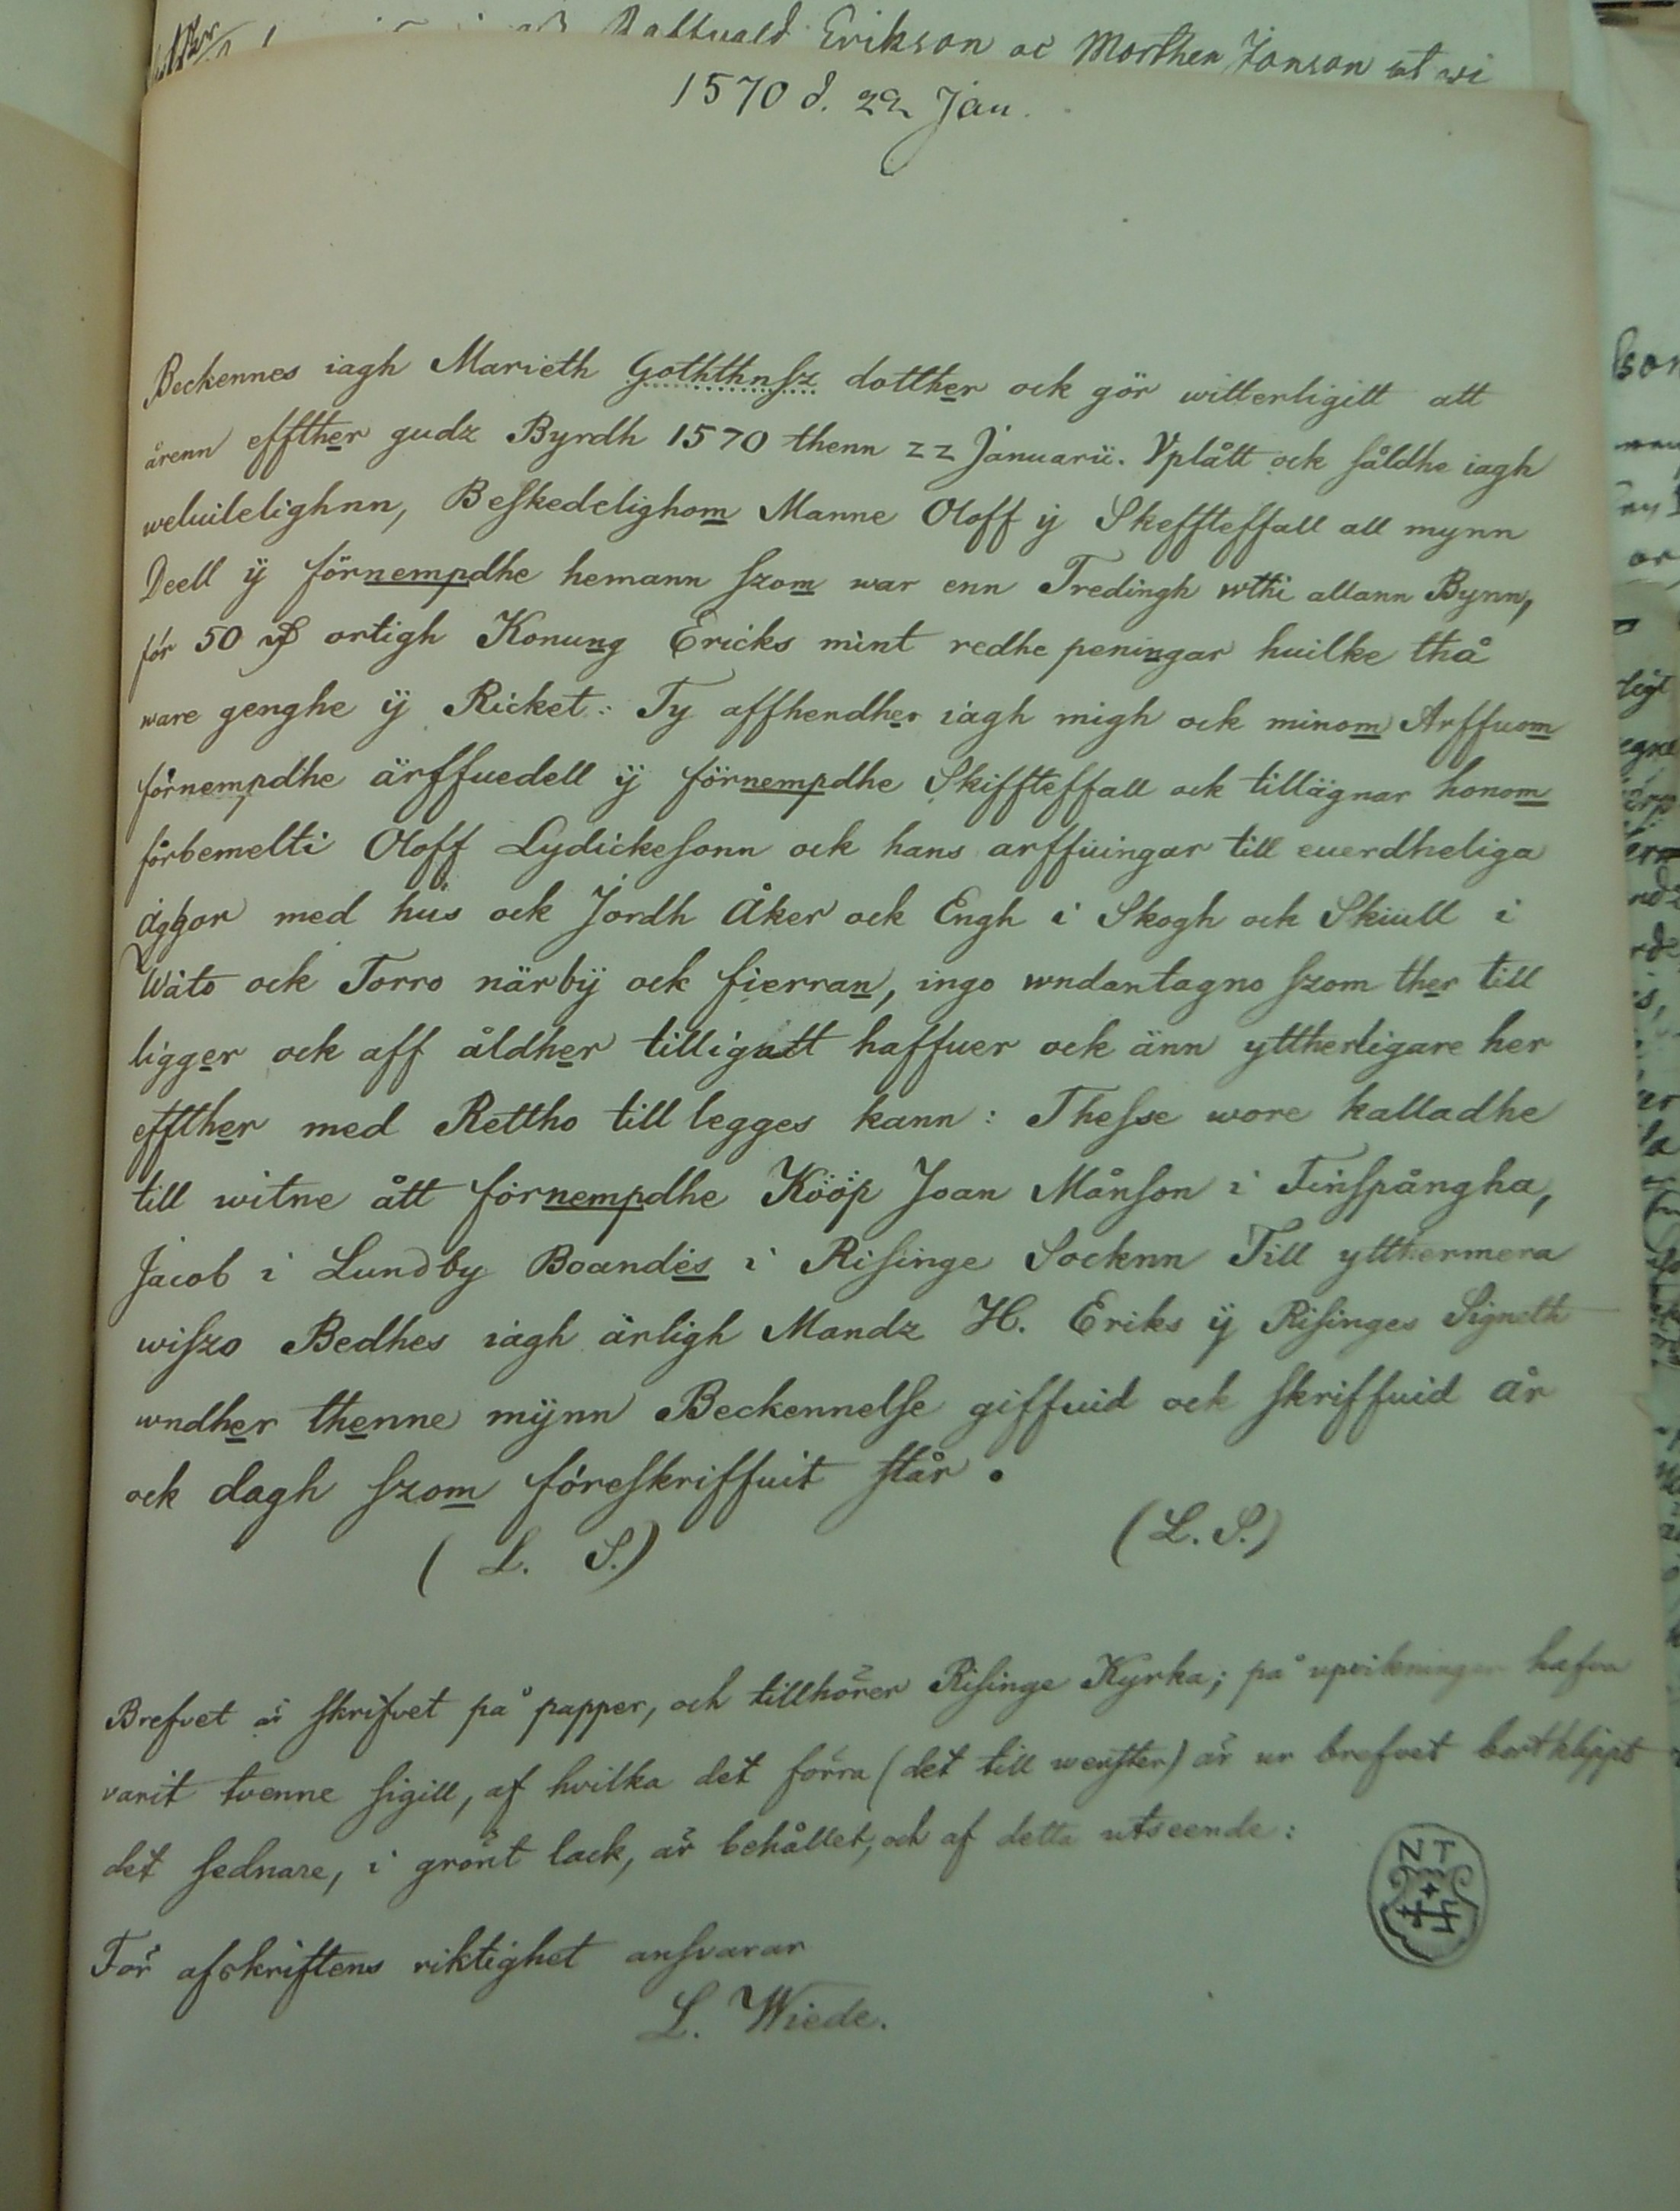 Erikson oc Morthen Jonson at wi
1570 d. 22 Jan.
Beckennes iagh Marieth Goththnſz dotther ock gör witterligitt att
årenn effther gudz Byrdh 1570 thenn zz Januarii. Vplått ock ſåldhe iagh
weluilelighnn, Beſkedelighom Manne Oloff ÿ Skeffteffall all mynn
Deell ÿ förnempdhe hemann ſzom war enn Tredingh wthi allann Bynn,
för 50 ortigh Konung Ericks mint redhe peningar huilke thå
ware genghe ÿ Ricket: Ty affhendher iagh migh ock minom Arffuom
förnempdhe ärffuedell ÿ förnempdhe Skiffteffall ock tillägnar honom
förbemelti Oloff Lydickeſonn ock hans arffuingar till euerdheliga
äghor med hus ock Jordh Åker ock Engh i Skogh ock Skiull i
Wåto ock Torro närbÿ ock fierran, ingo wndantagno ſzom ther till
ligger ock aff åldher tilligatt haffuer ock änn yttherligare her
effther med Rettho till legges kann: Theſse wore kalladhe
till witne ått förnempdhe Kööp Joan Månſon i Finſpångha,
Jacob i Lundby Boandes i Riſinge Socknn Till ytthermera
wiſzo Bedhes iagh ärligh Mandz H. Eriks ÿ Riſinges Signeth
wndher thenne mÿnn Beckennelſe giffuid ock ſkriffuid år
ock dagh ſzom föreſkriffuit ſtår.
(L. S.) (L. S.)
Brefvet är ſkrifvet på papper, och tillhörer Riſinge Kyrka; på upvikningen hafva
varit tvenne ſigill, af hvilka det förra (det till wenſter) är ur brefvet bortklippt
det ſednare, i grönt lack, är behållet, och af detta utseende:
N T
För afskriftens riktighet anſvarar
L. Wiede.